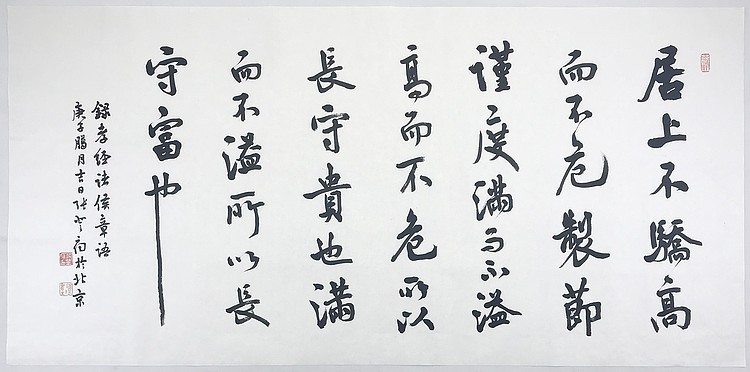 居上不驕高
而不危製節
謹度滿而不溢
高而不危所以
長守貴也滿
而不溢所以長
守富也
錄孝經諸侯章語
庚子臘月吉日張於北京